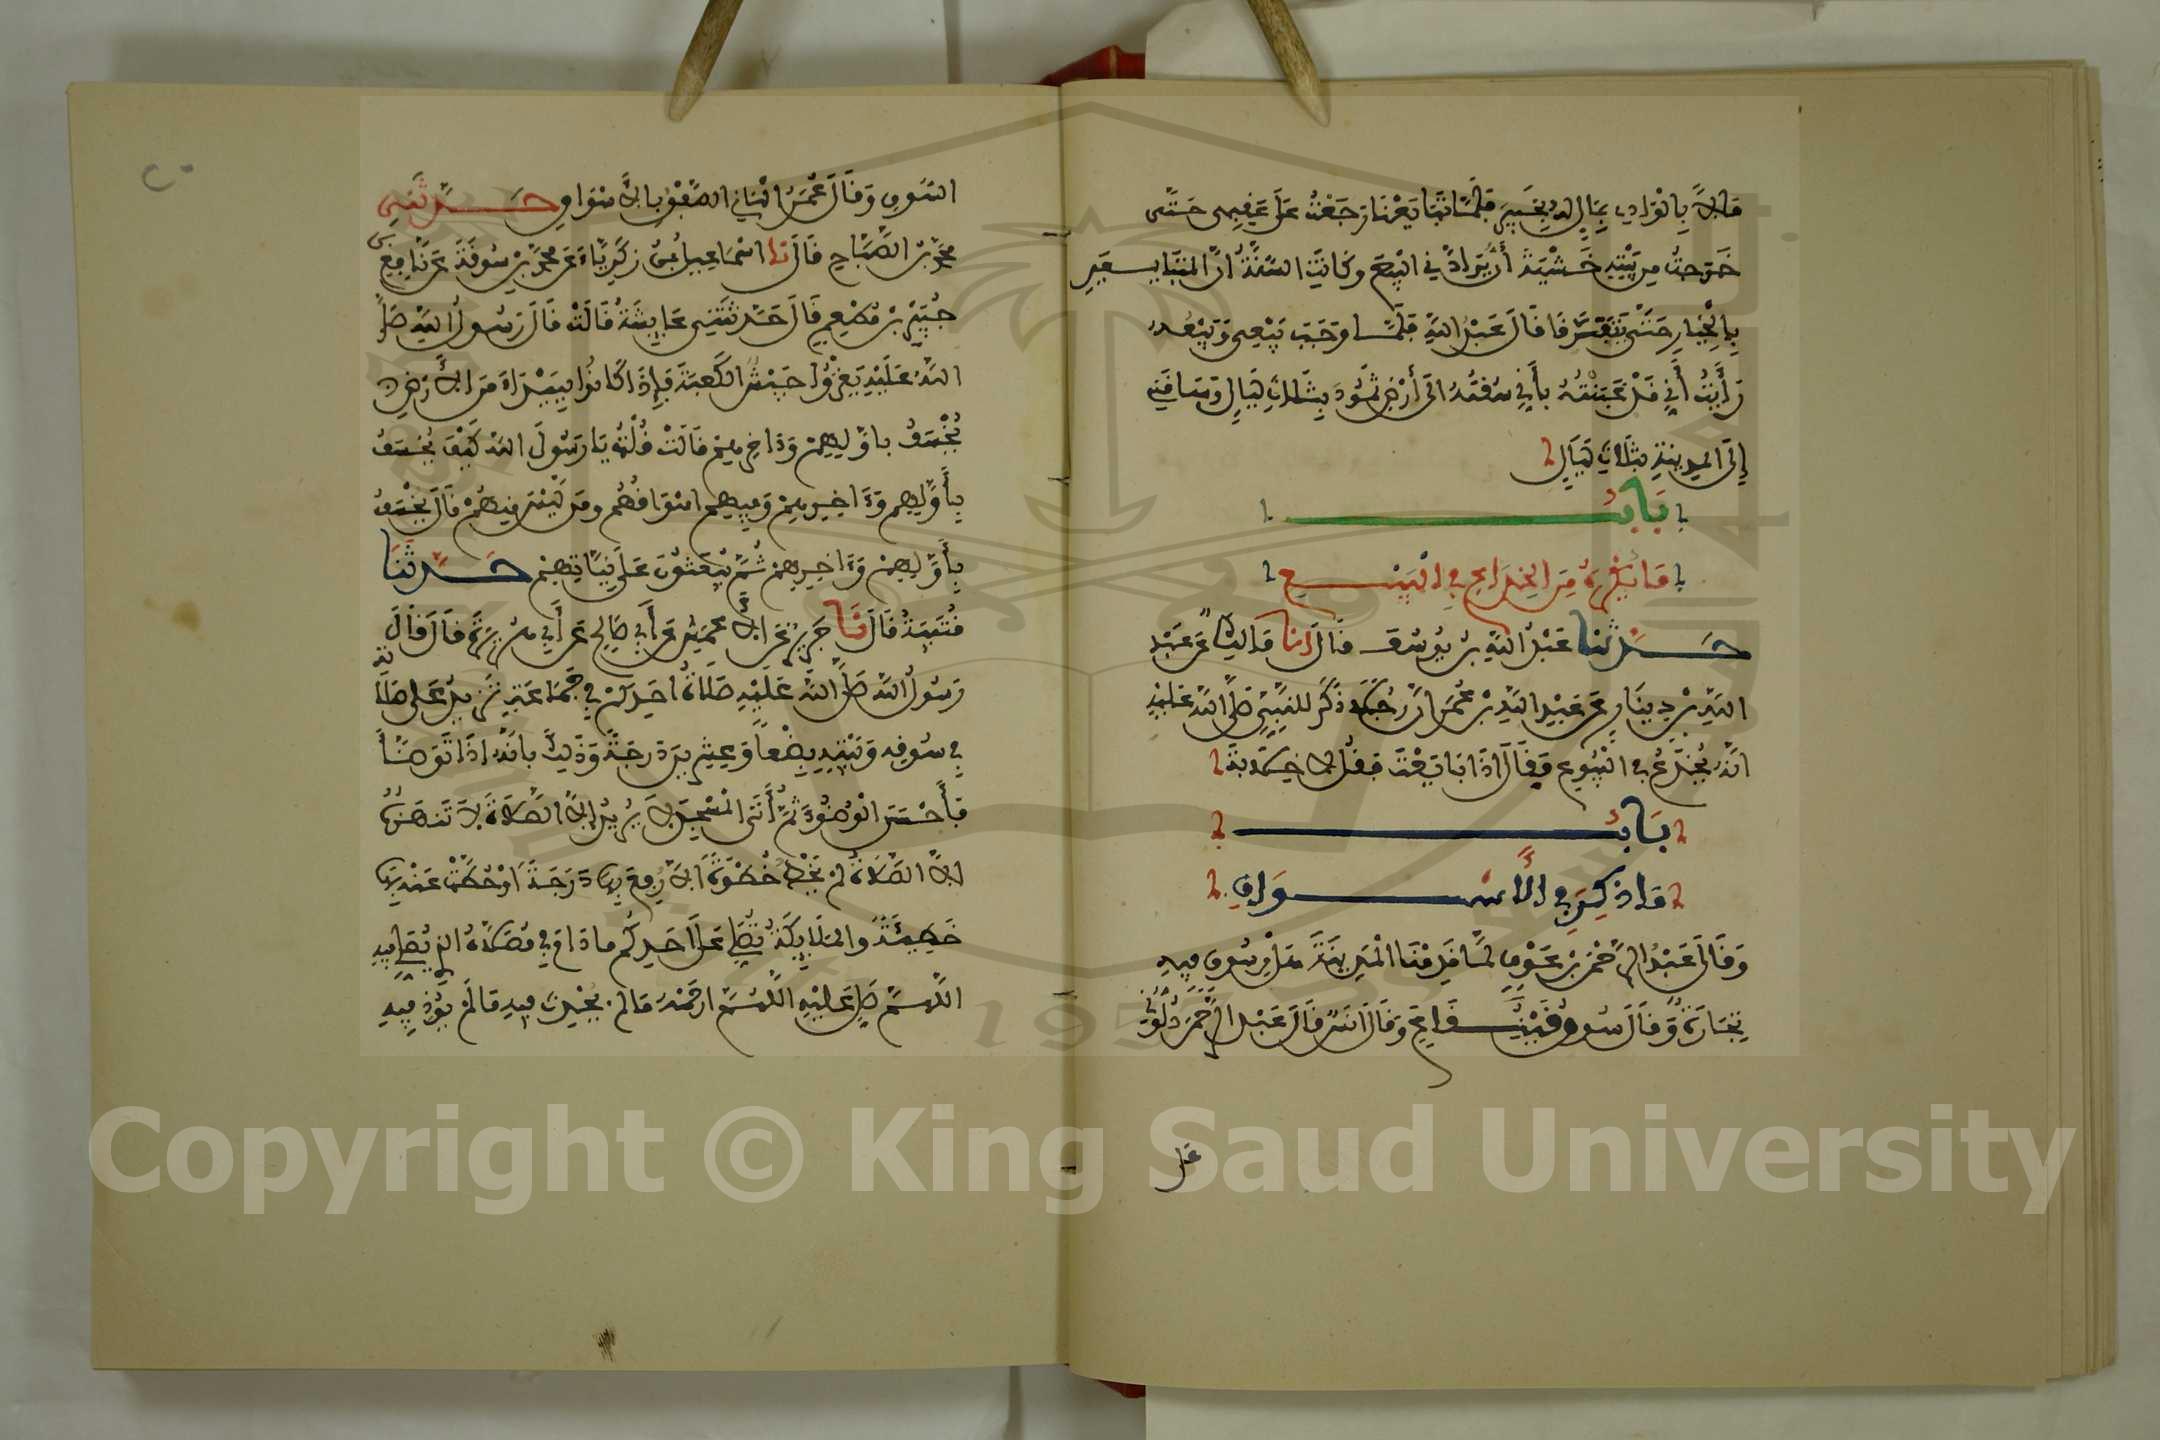 مَالاً بِالْوَادِي بِمَالٍ لَهُ بِخَيْبَرَ فَلَمَّا تَبَايَعْنَا رَجَعْتُ عَلَى عَقِبِي حَتَّى
خَرَجْتُ مِن بَيْتِهِ خَشْيَةَ أَنْ يُرَادَّنِي الْبَيْعَ وَكَانَتِ السُّنَّةُ أنَّ المُتَبَايِعَيْنِ
بِالْخِيَارِ حَتَّى يَتَفَرَّقَا قَالَ عَبْدُ اللَّهِ فَلَمَّا وَجَبَ بَيْعِي وَبَيْعُهُ
رَأَيْتُ أَنِّي قَدْ غَبَنْتُهُ بِأَنِّي سُقْتُهُ الَى أَرْضِ ثَمُودَ بِثَلَاثِ لَيَالٍ وَسَاقَنِي
إِلَى الْمَدِينَةِ بِثَلَاثِ لَيَالٍ
بَابُ
مَا يُكْرَهُ مِنَ الخِدَاعِ فِي الْبَيْعِ
حَدَّثَنَا عَبْدُ اللَّهِ بْنُ يُوسُفَ قَالَ انا مَالِكٌ عَنْ عَبْدِ
اللَّهِ بْنِ دِينَارٍ عَنْ عَبْدِ اللَّهِ بْنِ عُمَرَ انَّ رَجُلاً ذَكَرَ لِلنَّبِيِّ صَلَّى اللَّهُ عَلَيْهِ
انَّهُ يُخْدَعُ فِي الْبُيُوعِ فَقَالَ اذَا بَايَعْتَ فَقُلْ لا خِلَابَةَ
بَابُ
مَا ذُكِرَ فِي الأَسْوَاقِ
وَقَالَ عَبْدُ الرَّحْمَنِ بْنُ عَوْفٍ لَمَّا قَدِمْنَا الْمَدِينَةَ هَلْ مِنْ سُوقٍ فِيهِ
تِجَارَةٌ وَقَالَ سُوقُ قَيْنُقَاعَ وَقَالَ انَسٌ قَالَ عَبْدُ الرَّحْمَنِ دُلُّونِي
عَلَى
السُّوقِ وَقَالَ عُمَرُ الْهَانِي الصَّفْقُ بِالأَسْوَاقِ حَدَّثَنِي
مُحَمَّدُ بْنُ الصَّبَّاحِ قَالَ نا اسْمَاعِيلُ بْنُ زَكَرِيَّاءَ عَنْ مُحَمَّدِ بْنِ سُوقَةَ عَنْ نَافِعِ بْنِ
جُبَيْرِ بْنِ مُطْعِمٍ قَالَ حَدَّثَتْنِي عَايِشَةُ قَالَتْ قَالَ رَسُولُ اللَّهِ صَلَّى
اللَّهُ عَلَيْهِ يَغْزُوا جَيْشٌ الْكَعْبَةَ فَإِذَا كَانُوا بِبَيْدَاءَ مِنَ الأَرْضِ
يُخْسَفُ بِأَوَّلِهِمْ وَءَاخِرِهِمْ قَالَتْ قُلْتُ يَا رَسُولَ اللَّهِ كَيْفَ يُخْسَفُ
بِأَوَّلِهِمْ وَءَاخِرِهِمْ وَفِيهِمُ اسْوَاقُهُمْ وَمَنْ لَيْسَ مِنْهُمْ قَالَ يُخْسَفُ
بِأَوَّلِهِمْ وَءَاخِرِهِمْ ثُمَّ يُبْعَثُونَ عَلَى نِيَّاتِهِمْ حَدَّثَنَا
قُتَيْبَةُ قَالَ نَا جَرِيرٌ عَنِ الأَعْمَشِ عَنْ أَبِي صَالِحٍ عَنْ أَبِي هُرَيْرَةَ قَالَ قَالَ
رَسُولُ اللَّهِ صَلَّى اللَّهُ عَلَيْهِ صَلَاةُ أَحَدِكُمْ فِي جَمَاعَةٍ تَزِيدُ عَلَى صَلَاتِهِ
فِي سُوقِهِ وَبَيْتِهِ بِضْعاً وَعِشْرِينَ دَرَجَةً وَذَلِكَ بِأَنَّهُ اذَا تَوَضَّأَ
فَأَحْسَنَ الْوُضُوءَ ثُمَّ أَتَى الْمَسْجِدَ لَا يُرِيدُ إِلَّا الصَّلَاةَ لَا تَنْهَزُهُ
الَّا الصَّلَاةُ لَمْ يَخْطُ خُطْوَةً الَّا رُفِعَ بِهَا دَرَجَةً اوْ حُطَّتْ عَنْهُ بِهَا
خَطِيئَةٌ وَالمَلَايِكَةُ تُصَلِّي عَلَى أَحَدِكُمْ مَا دَامَ فِي مُصَلَّاهُ الَّذِي يُصَلِّي فِيهِ
اللَّهُمَّ صَلِّ عَلَيْهِ اللَّهُمَّ ارْحَمْهُ مَا لَمْ يُحْدِثْ فِيهِ مَا لَمْ يُؤْذِ فِيهِ
Copyright © King Saud University